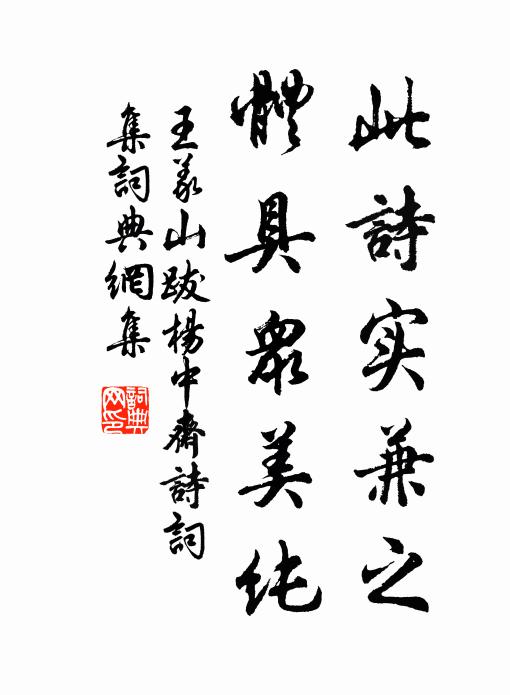 此詩实兼之
體具衆美纯
王义山跋楊中齋詩詞
集詞典網集
詞典
网印